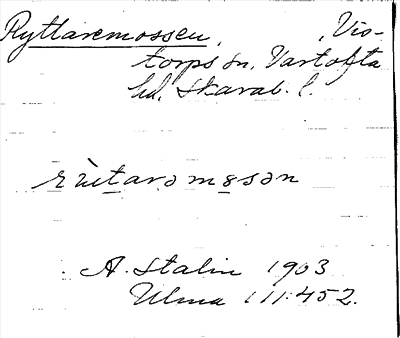 Ryttaremossen, Vis-
torps sn, Vartofta
hd, Skarab. l.
rüetarəmosən
A. Stalin 1903
Ulma 111:452.